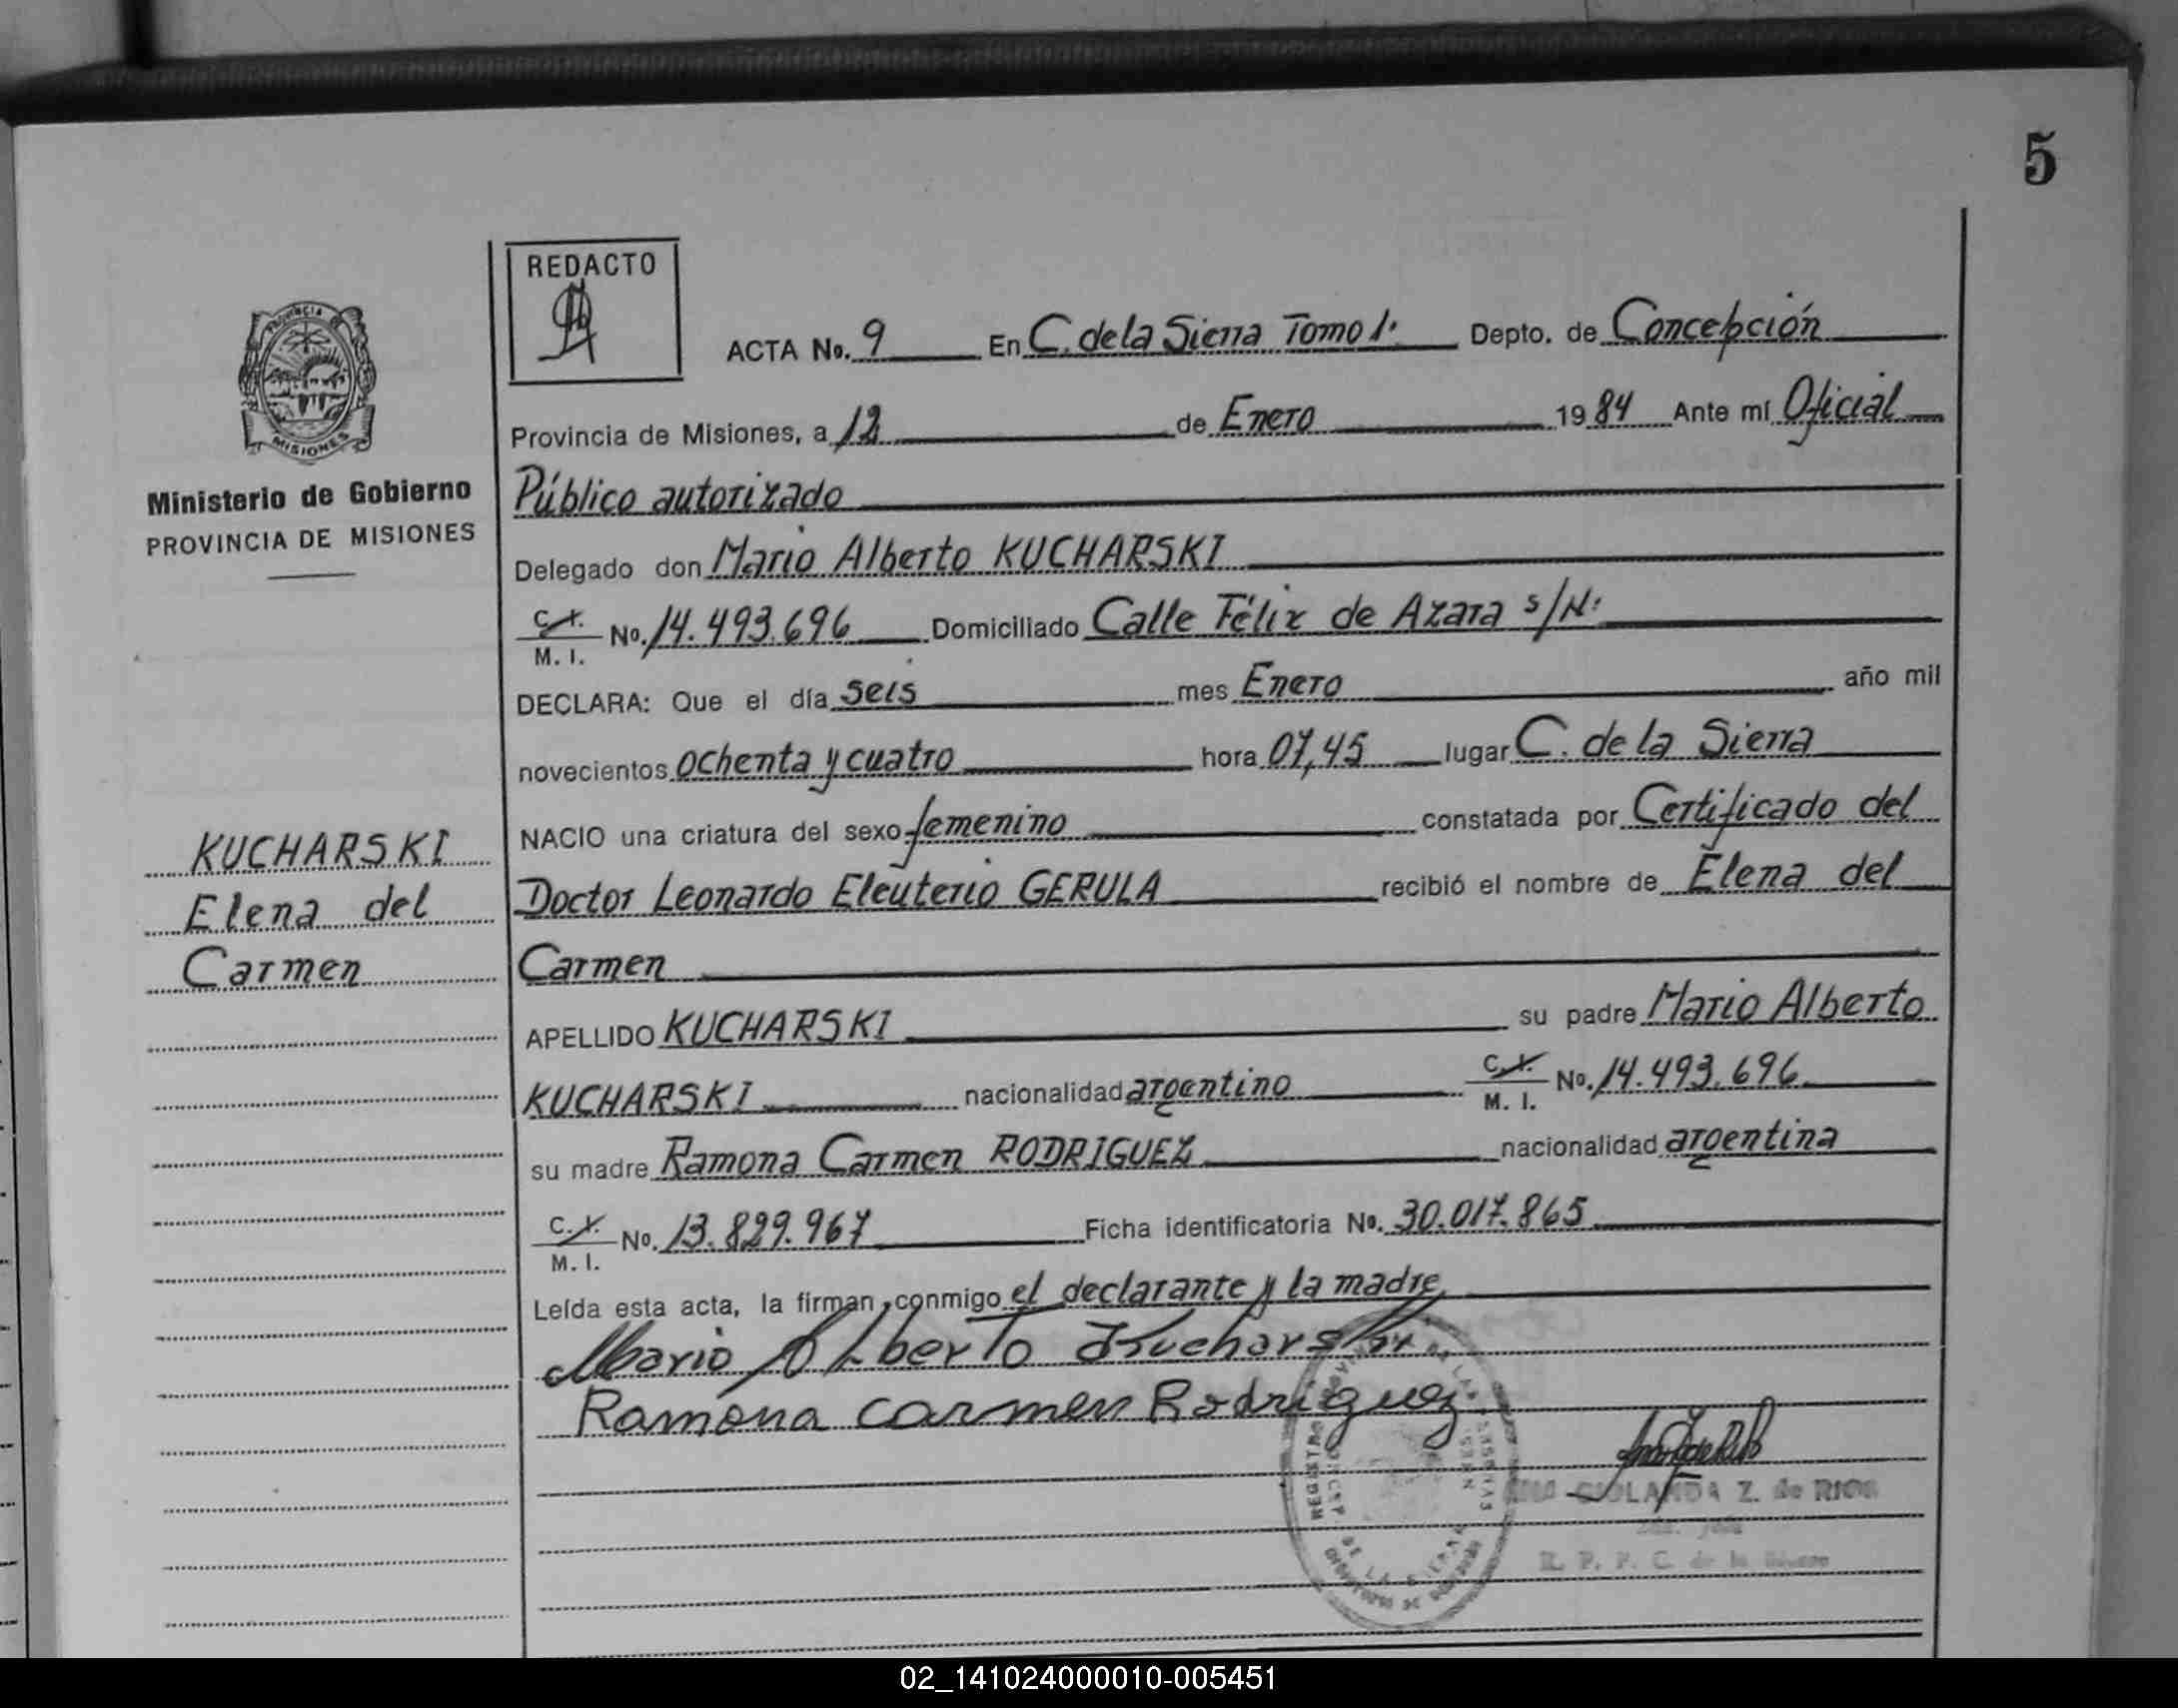 5
REDACTO
ACTA No. 9 En C. de la Sierra Tomo 1º Depto. de Concepción
Provincia de Misiones, a 12 de Enero 1984 Ante mí Oficial
Público autorizado
Delegado don Mario Alberto KUCHARSKI
C.I. M. I. No. 14.493.696 Domiciliado Calle Félix de Azara s/Nº
DECLARA: Que el día seis mes Enero año mil
novecientos ochenta y cuatro hora 07,45 lugar C. de la Sierra
NACIO una criatura del sexo femenino constatada por Certificado del
Doctor Leonardo Eleuterio GERULA recibió el nombre de Elena del
Carmen
APELLIDO KUCHARSKI su padre Mario Alberto
KUCHARSKI nacionalidad argentino C.I. M. I. No. 14.493.696
su madre Ramona Carmen RODRIGUEZ nacionalidad argentina
C.I. M. I. No. 13.829.967 Ficha identificatoria No. 30.017.865
Leída esta acta, la firman conmigo el declarante y la madre
Mario Alberto Kucharski
Ramona Carmen Rodriguez
Z. de RIOS
R. P. P. C. de la
PROVINCIA DE
MISIONES
Ministerio de Gobierno
PROVINCIA DE MISIONES
KUCHARSKI
Elena del
Carmen
02_141024000010-005451